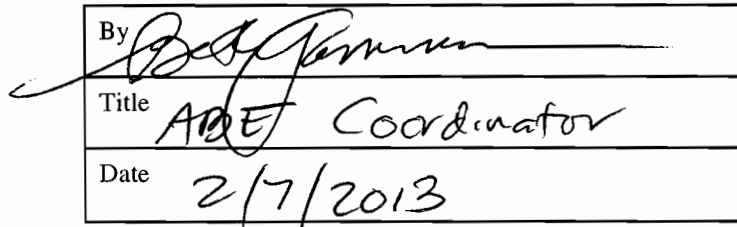 By
Title ABE Coordinator
Date 2/7/2013